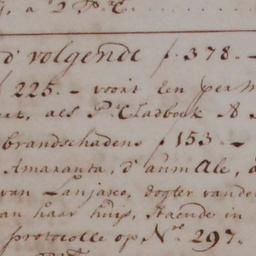 a 2 P.C.
volgende f 378. –
f 225. – voort Een per
als P.r Cladboek A
brandschadens f 153. –
Amaranta, d'anm Ale,
van Lanjasco, dogter vande
aan haar huijs, staende in
protocolle op N.o 297.